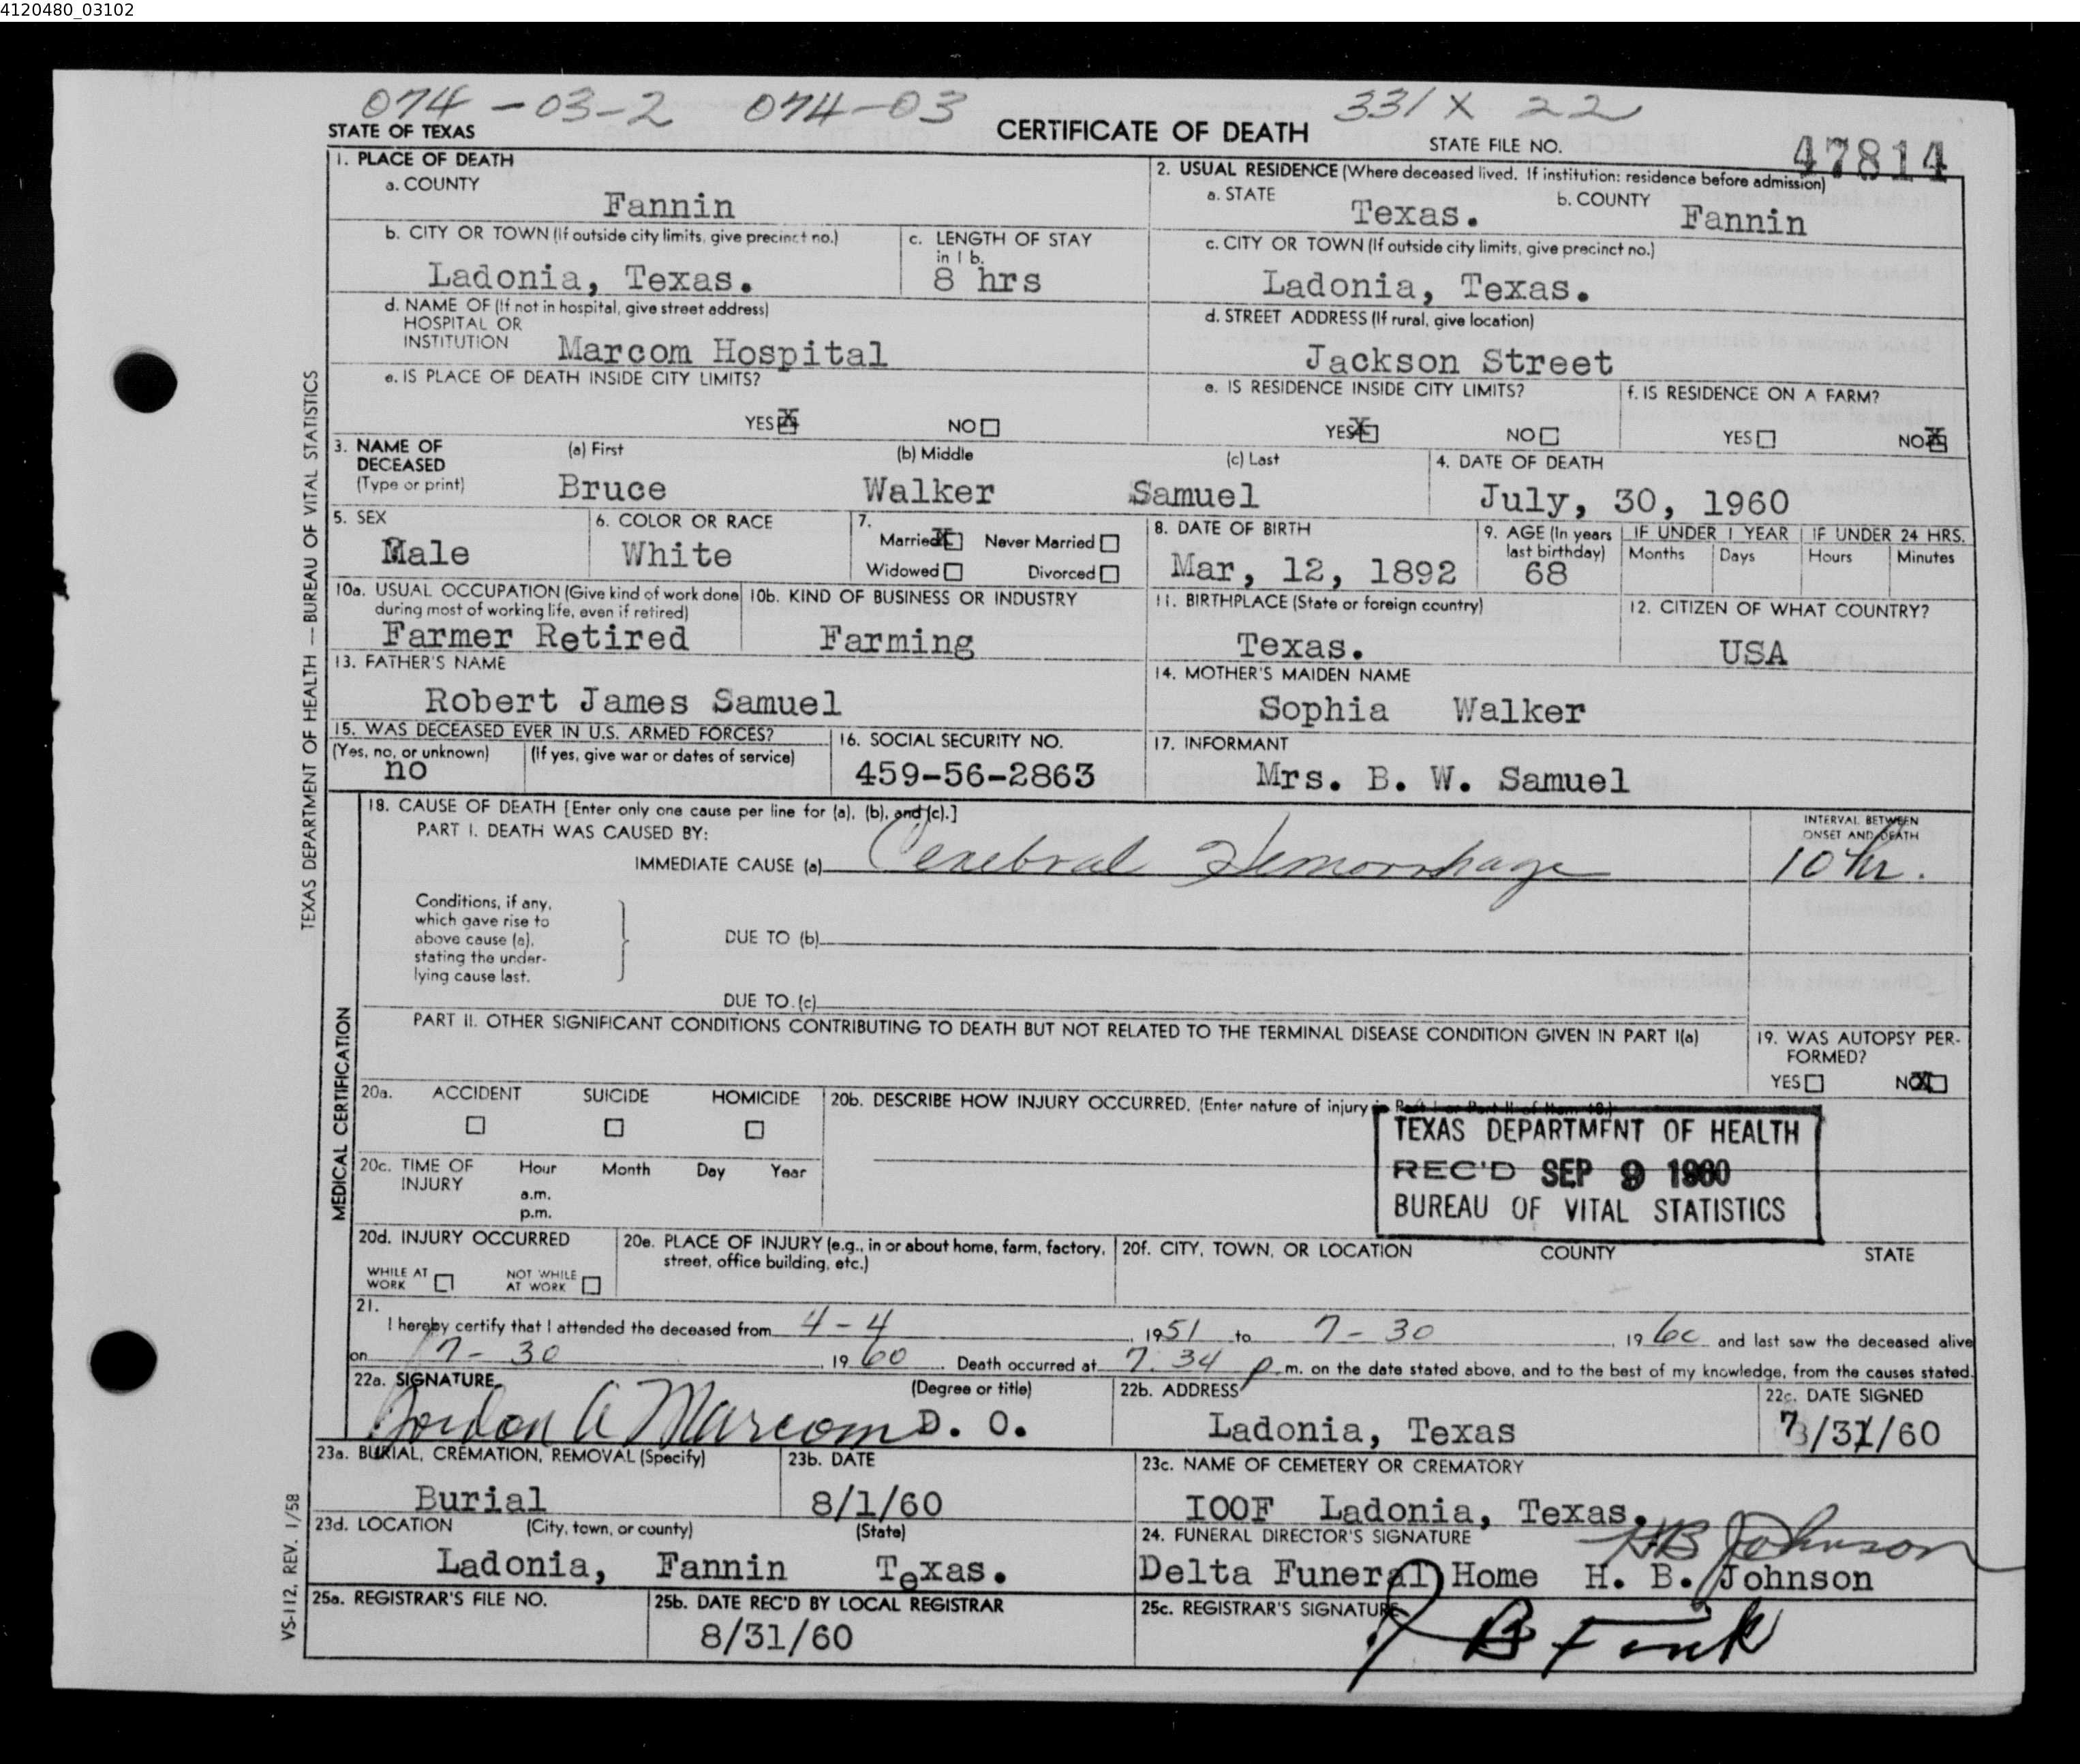 4120480_03102
074-03-2 074-03 331 X 22
STATE OF TEXAS CERTIFICATE OF DEATH STATE FILE NO. 47814
1. PLACE OF DEATH
a. COUNTY
Fannin
2. USUAL RESIDENCE (Where deceased lived. If institution: residence before admission)
a. STATE Texas. b. COUNTY Fannin
b. CITY OR TOWN (If outside city limits, give precinct no.)
Ladonia, Texas.
c. LENGTH OF STAY
in 1 b.
8 hrs
c. CITY OR TOWN (If outside city limits, give precinct no.)
Ladonia, Texas.
d. NAME OF (If not in hospital, give street address)
HOSPITAL OR
INSTITUTION Marcom Hospital
d. STREET ADDRESS (If rural, give location)
Jackson Street
e. IS PLACE OF DEATH INSIDE CITY LIMITS?
YES X NO
e. IS RESIDENCE INSIDE CITY LIMITS?
YES X NO
f. IS RESIDENCE ON A FARM?
YES NO X
3. NAME OF
DECEASED
(Type or print)
(a) First (b) Middle (c) Last
Bruce Walker Samuel
4. DATE OF DEATH
July, 30, 1960
5. SEX
Male
6. COLOR OR RACE
White
7.
Married X Never Married
Widowed Divorced
8. DATE OF BIRTH
Mar, 12, 1892
9. AGE (In years
last birthday)
68
IF UNDER 1 YEAR IF UNDER 24 HRS.
Months Days Hours Minutes
10a. USUAL OCCUPATION (Give kind of work done
during most of working life, even if retired)
Farmer Retired
10b. KIND OF BUSINESS OR INDUSTRY
Farming
11. BIRTHPLACE (State or foreign country)
Texas.
12. CITIZEN OF WHAT COUNTRY?
USA
13. FATHER'S NAME
Robert James Samuel
14. MOTHER'S MAIDEN NAME
Sophia Walker
15. WAS DECEASED EVER IN U.S. ARMED FORCES?
(Yes, no, or unknown) (If yes, give war or dates of service)
no
16. SOCIAL SECURITY NO.
459-56-2863
17. INFORMANT
Mrs. B. W. Samuel
18. CAUSE OF DEATH [Enter only one cause per line for (a), (b), and (c).]
PART I. DEATH WAS CAUSED BY:
IMMEDIATE CAUSE (a) Cerebral Hemorrhage
INTERVAL BETWEEN
ONSET AND DEATH
10 hr.
Conditions, if any,
which gave rise to
above cause (a),
stating the under-
lying cause last.
DUE TO (b)
DUE TO (c)
PART II. OTHER SIGNIFICANT CONDITIONS CONTRIBUTING TO DEATH BUT NOT RELATED TO THE TERMINAL DISEASE CONDITION GIVEN IN PART I(a)
19. WAS AUTOPSY PER-
FORMED?
YES NO X
20a. ACCIDENT SUICIDE HOMICIDE
20b. DESCRIBE HOW INJURY OCCURRED. (Enter nature of injury in Part I or Part II of Item 18.)
TEXAS DEPARTMENT OF HEALTH
REC'D SEP 9 1960
BUREAU OF VITAL STATISTICS
20c. TIME OF
INJURY
Hour Month Day Year
a.m.
p.m.
20d. INJURY OCCURRED
WHILE AT
WORK
NOT WHILE
AT WORK
20e. PLACE OF INJURY (e.g., in or about home, farm, factory,
street, office building, etc.)
20f. CITY, TOWN, OR LOCATION COUNTY STATE
21.
I hereby certify that I attended the deceased from 4-4, 1951 to 7-30, 1960 and last saw the deceased alive
on 7-30, 1960. Death occurred at 7:34 p.m. on the date stated above, and to the best of my knowledge, from the causes stated.
22a. SIGNATURE (Degree or title)
Gordon A Marcom D. O.
22b. ADDRESS
Ladonia, Texas
22c. DATE SIGNED
7/31/60
23a. BURIAL, CREMATION, REMOVAL (Specify)
Burial
23b. DATE
8/1/60
23c. NAME OF CEMETERY OR CREMATORY
IOOF Ladonia, Texas.
23d. LOCATION (City, town, or county) (State)
Ladonia, Fannin Texas.
24. FUNERAL DIRECTOR'S SIGNATURE
HB Johnson
Delta Funeral Home H. B. Johnson
25a. REGISTRAR'S FILE NO.
25b. DATE REC'D BY LOCAL REGISTRAR
8/31/60
25c. REGISTRAR'S SIGNATURE
J B Fink
TEXAS DEPARTMENT OF HEALTH — BUREAU OF VITAL STATISTICS
MEDICAL CERTIFICATION
VS-112, REV. 1/58